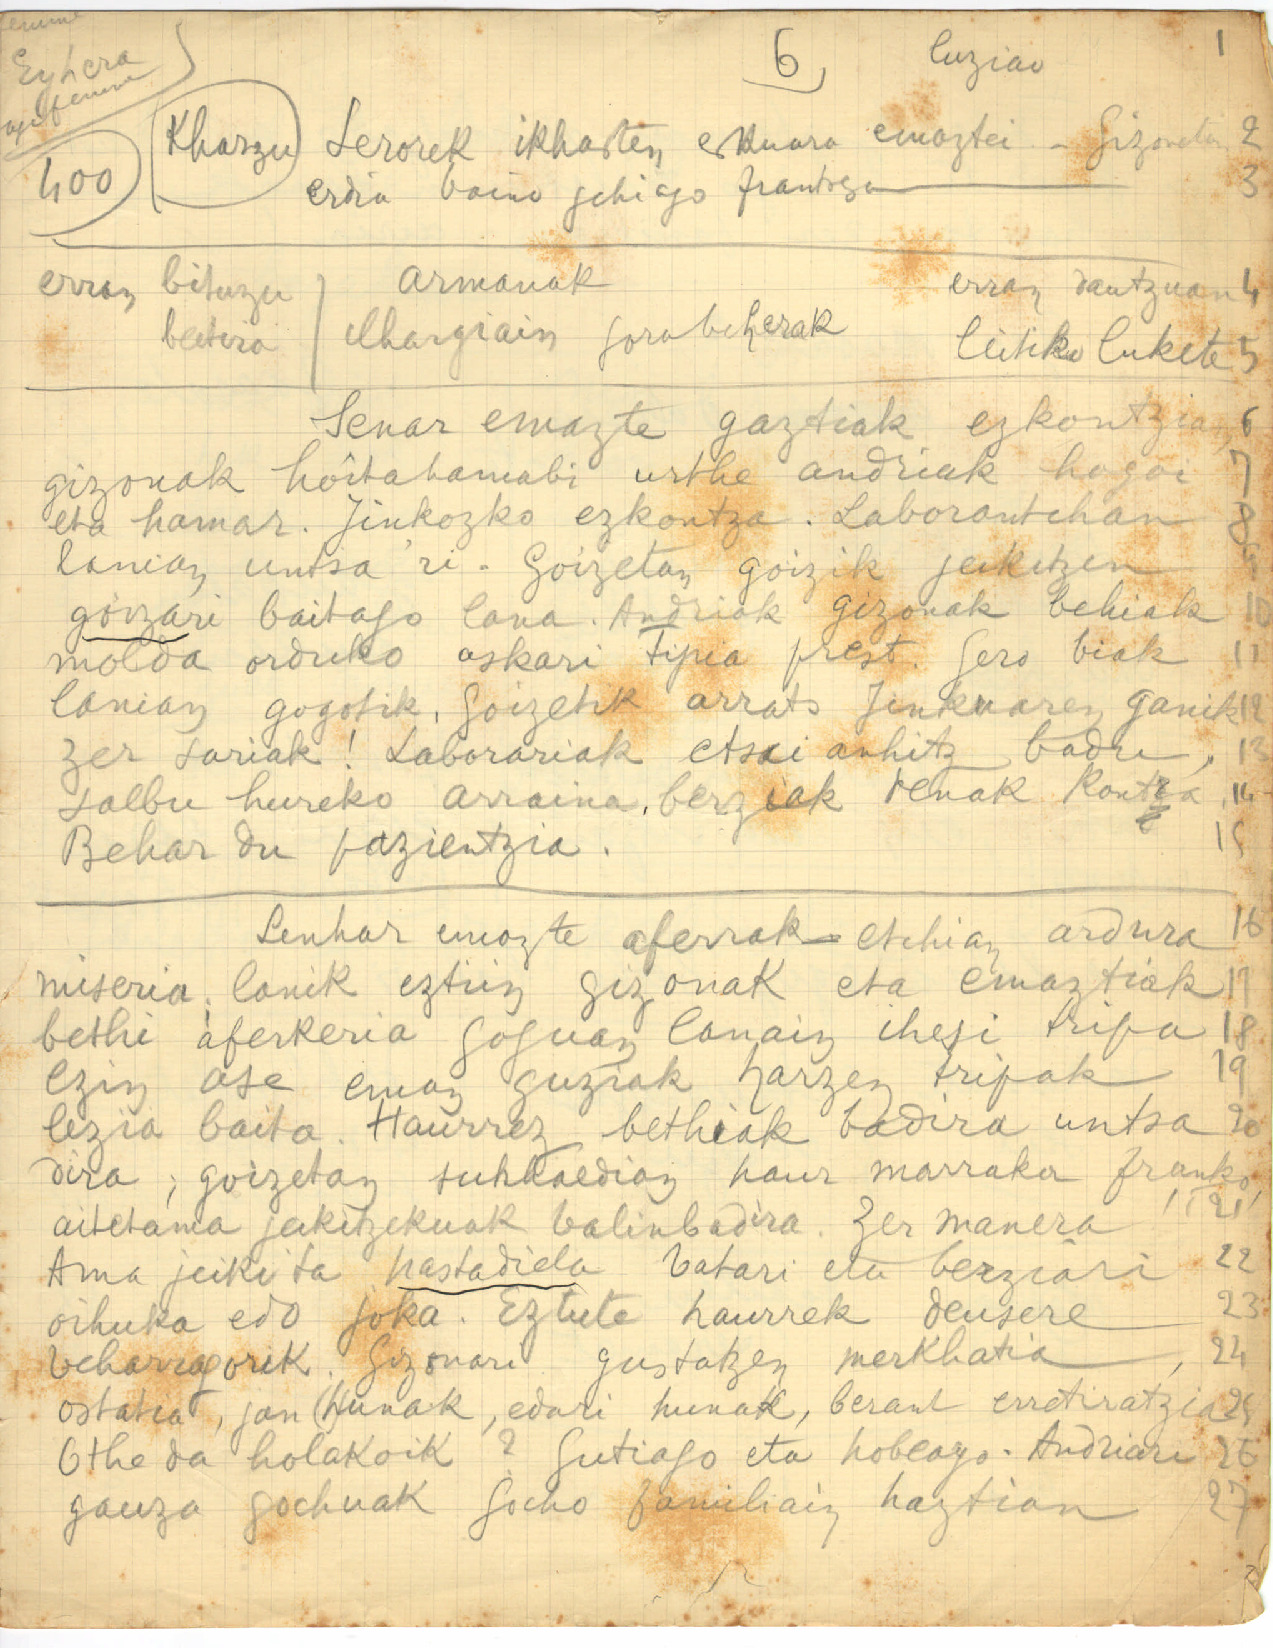 Eyhera
6 luziao 1
400 Kharzu Serorek ikhasten eskuara emaztei - Gizonetan 2
erdia baino gehiago frantsesa 3
erran bituzu armanak erran dautzuan 4
beitira Ilhargiain gorabeherak leitike lukete 5
Senar emazte gaztiak ezkontzian, 6
gizonak hôitahamabi urthe andriak hogoi 7
eta hamar. Jinkozko ezkontza. Laborantchan 8
lanian untsa 'ri. Goizetan goizik jeikitzen 9
goizari baitago lana. Andriak gizonak behiak 10
molda orduko askari tipia prest. Gero biak 11
lanian gogotik. Goizetik arrats Jinkuaren ganik 12
zer sariak! Laborariak etsai anhitz badu, 13
salbu hureko arraina, berziak denak kontra. 14
Behar du pazientzia. 15
Senhar emazte aferrak etchian ardura 16
miseria, lanik eztiin gizonak eta emaztiak 17
bethi aferkeria goguan lanain ihesi tripa 18
ezin ase eman guziak harzen tripak 19
lezia baita. Haurrez bethiak badira untsa 20
dira; goizetan suhhaedian haur marraka franko,
aitetama jeikitzekuak balinbadira. Zer manera !! 21!
Ama jeiki ta hastadiela batari eta berziari 22
oihuka edo joka. Eztute haurrek deusere 23
beharragorik. Gizonari gustatzen merkhatia, 24
ostatia, jan hunak, edari hunak, berant erretiratzia 25
Othe da holakoik? Gutiago eta hobeago. Andriari 26
gauza gochuak gocho familiain haztian 27